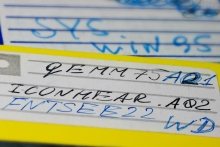 SYS
WIN95
QEMM75AR1
ICONHEAR.A02
ENTSEE22 WD